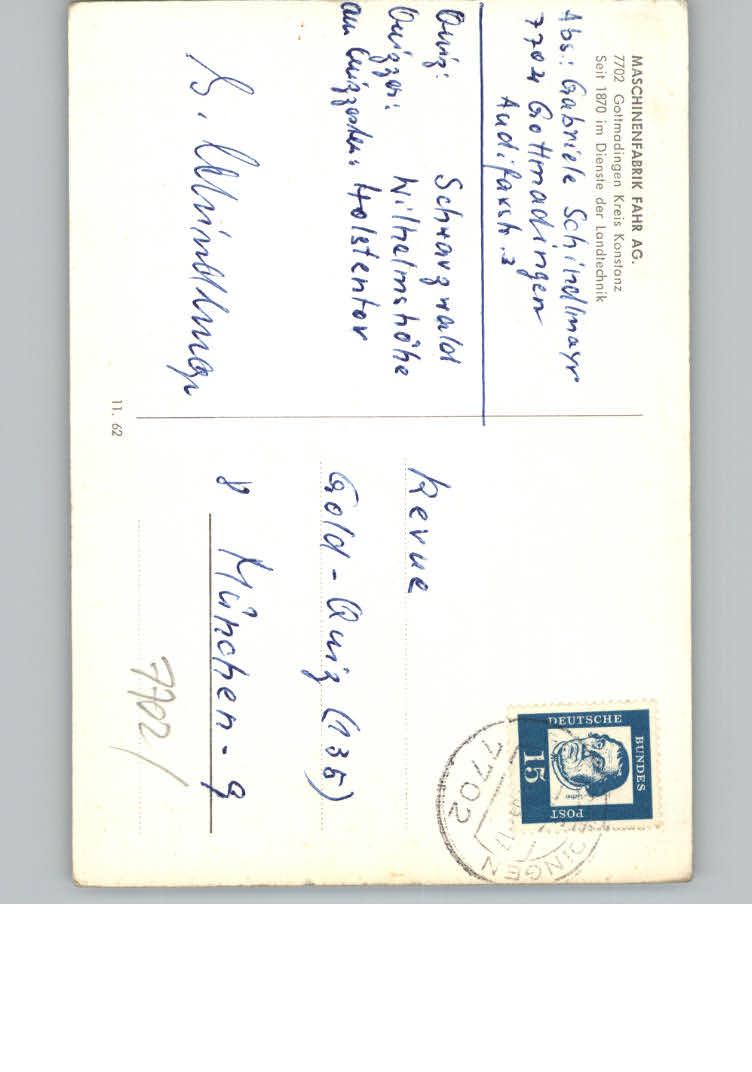 MASCHINENFABRIK FAHR AG.
7702 Gottmadingen Kreis Konstanz
Seit 1870 im Dienste der Landtechnik
Abs.: Gabriele Schindlmayr
7702 Gottmadingen
Audifaxstr. 3
Quiz: Schwarzwald
Quizzer: Wilhelmshöhe
am Quizzesten: Holstentor
G. Schindlmayr
11. 62
Revue
Gold-Quiz (135)
8 München-9
7702/
DEUTSCHE
BUNDES
POST
15
7702
DINGEN